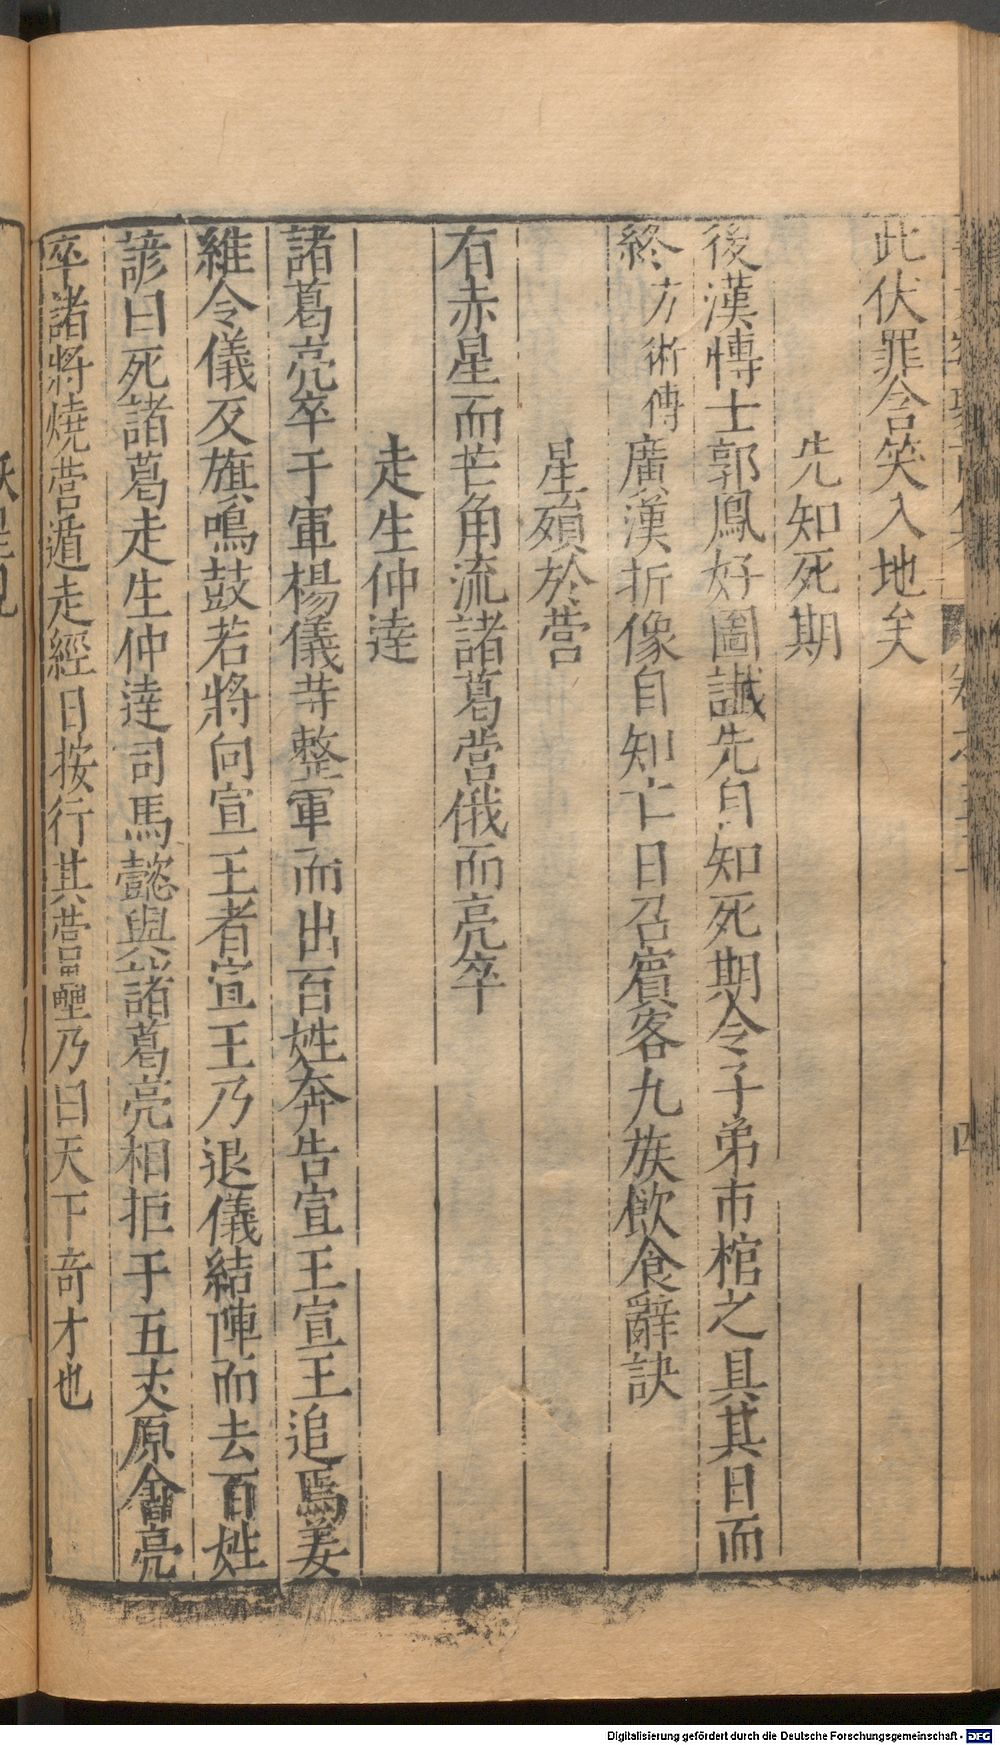 此伏罪含笑入地矣
先知死期
後漢愽士郭鳳好圖讖先自知死期令子弟市棺之具其日而
終方術傳廣漢折像自知亡日召賔客九族飲食辭訣
星殞於營
有赤星而芒角流諸葛營俄而亮卒
走生仲達
諸葛亮卒于軍楊儀䓁整軍而出百姓奔告宣王宣王追焉姜
維令儀反旗鳴鼓若將向宣王者宣王乃退儀結陣而去百姓
諺曰死諸葛走生仲達司馬懿與諸葛亮相拒于五丈原會亮
卒諸將燒營遁走經日按行其營壘乃曰天下奇才也
四
Digitalisierung gefördert durch die Deutsche Forschungsgemeinschaft - DFG